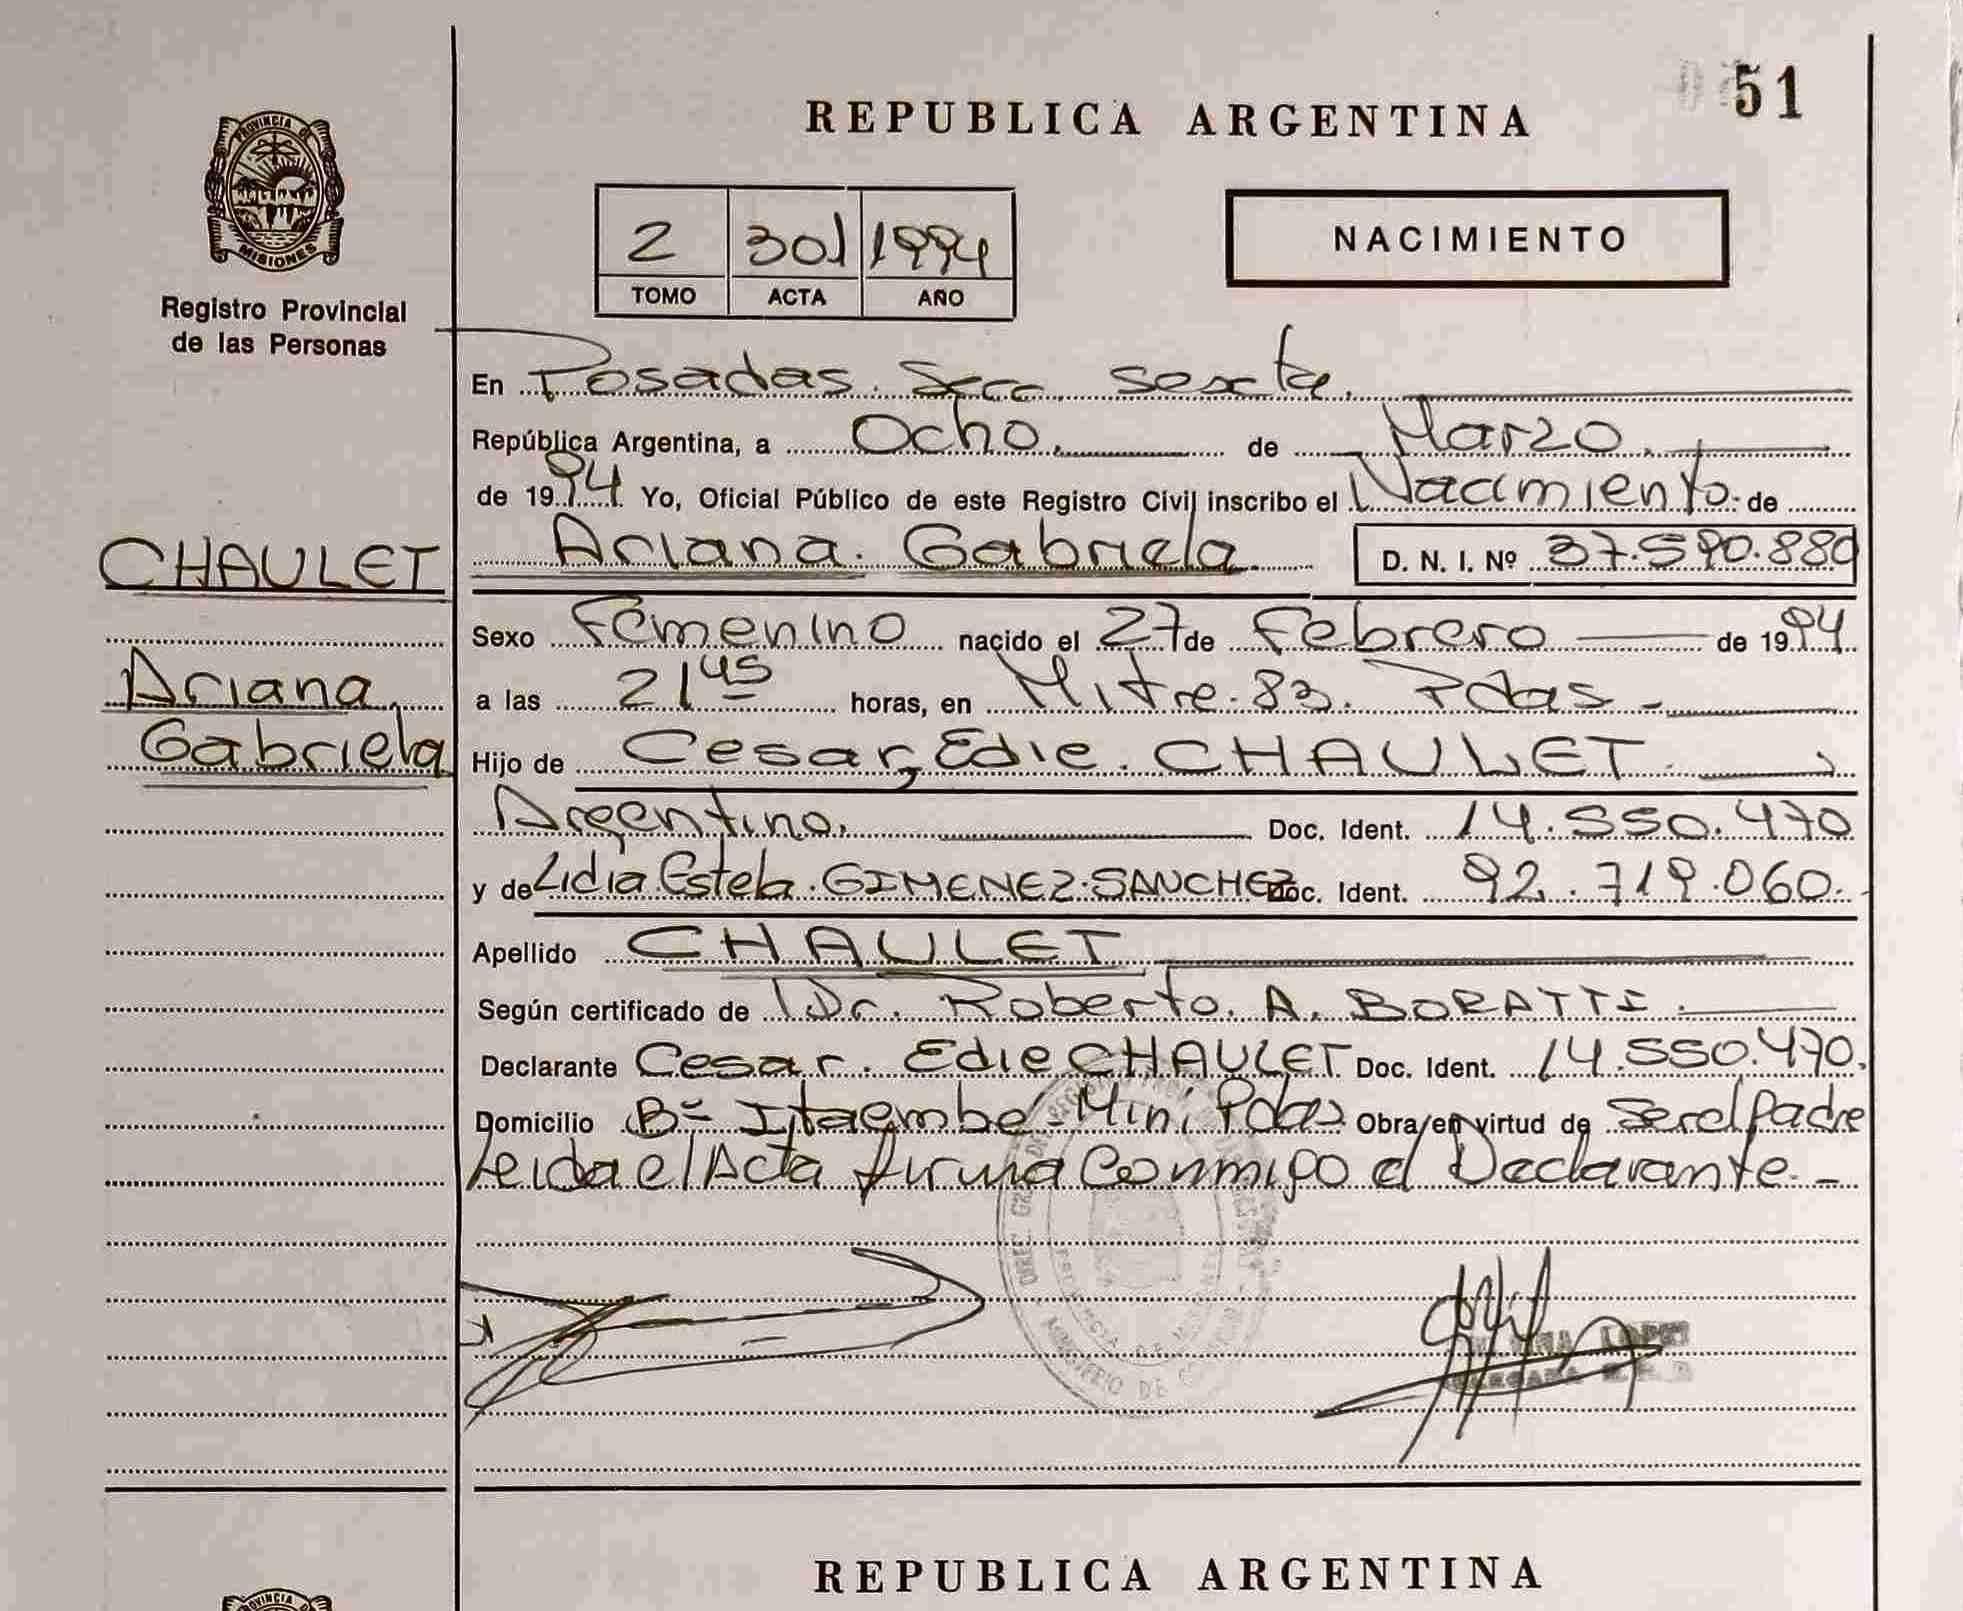 51
REPUBLICA ARGENTINA
PROVINCIA DE
MISIONES
Registro Provincial
de las Personas
2 301 1994
TOMO ACTA AÑO
NACIMIENTO
En Posadas. Secc. sexta.
República Argentina, a Ocho. de Marzo.
de 1994 Yo, Oficial Público de este Registro Civil inscribo el Nacimiento de
CHAULET
Ariana Gabriela
Ariana. Gabriela. D. N. I. Nº 37.590.880
Sexo Femenino nacido el 27 de Febrero de 1994
a las 21 45 horas, en Mitre. 83. Pdas -
Hijo de Cesar, Edie. CHAULET.
Argentino. Doc. Ident. 14.550.470
y de Lidia Estela. GIMENEZ. SANCHEZ Doc. Ident. 92.719.060.
Apellido CHAULET
Según certificado de Dr. Roberto. A. BORATTI.
Declarante Cesar. Edie CHAULET Doc. Ident. 14.550.470.
Domicilio Bº Itaembe-Miní Pdas Obra en virtud de Ser el Padre
Leida el Acta firma Conmigo el Declarante. -
MINISTERIO DE
LOPEZ
REPUBLICA ARGENTINA
PROVINCIA